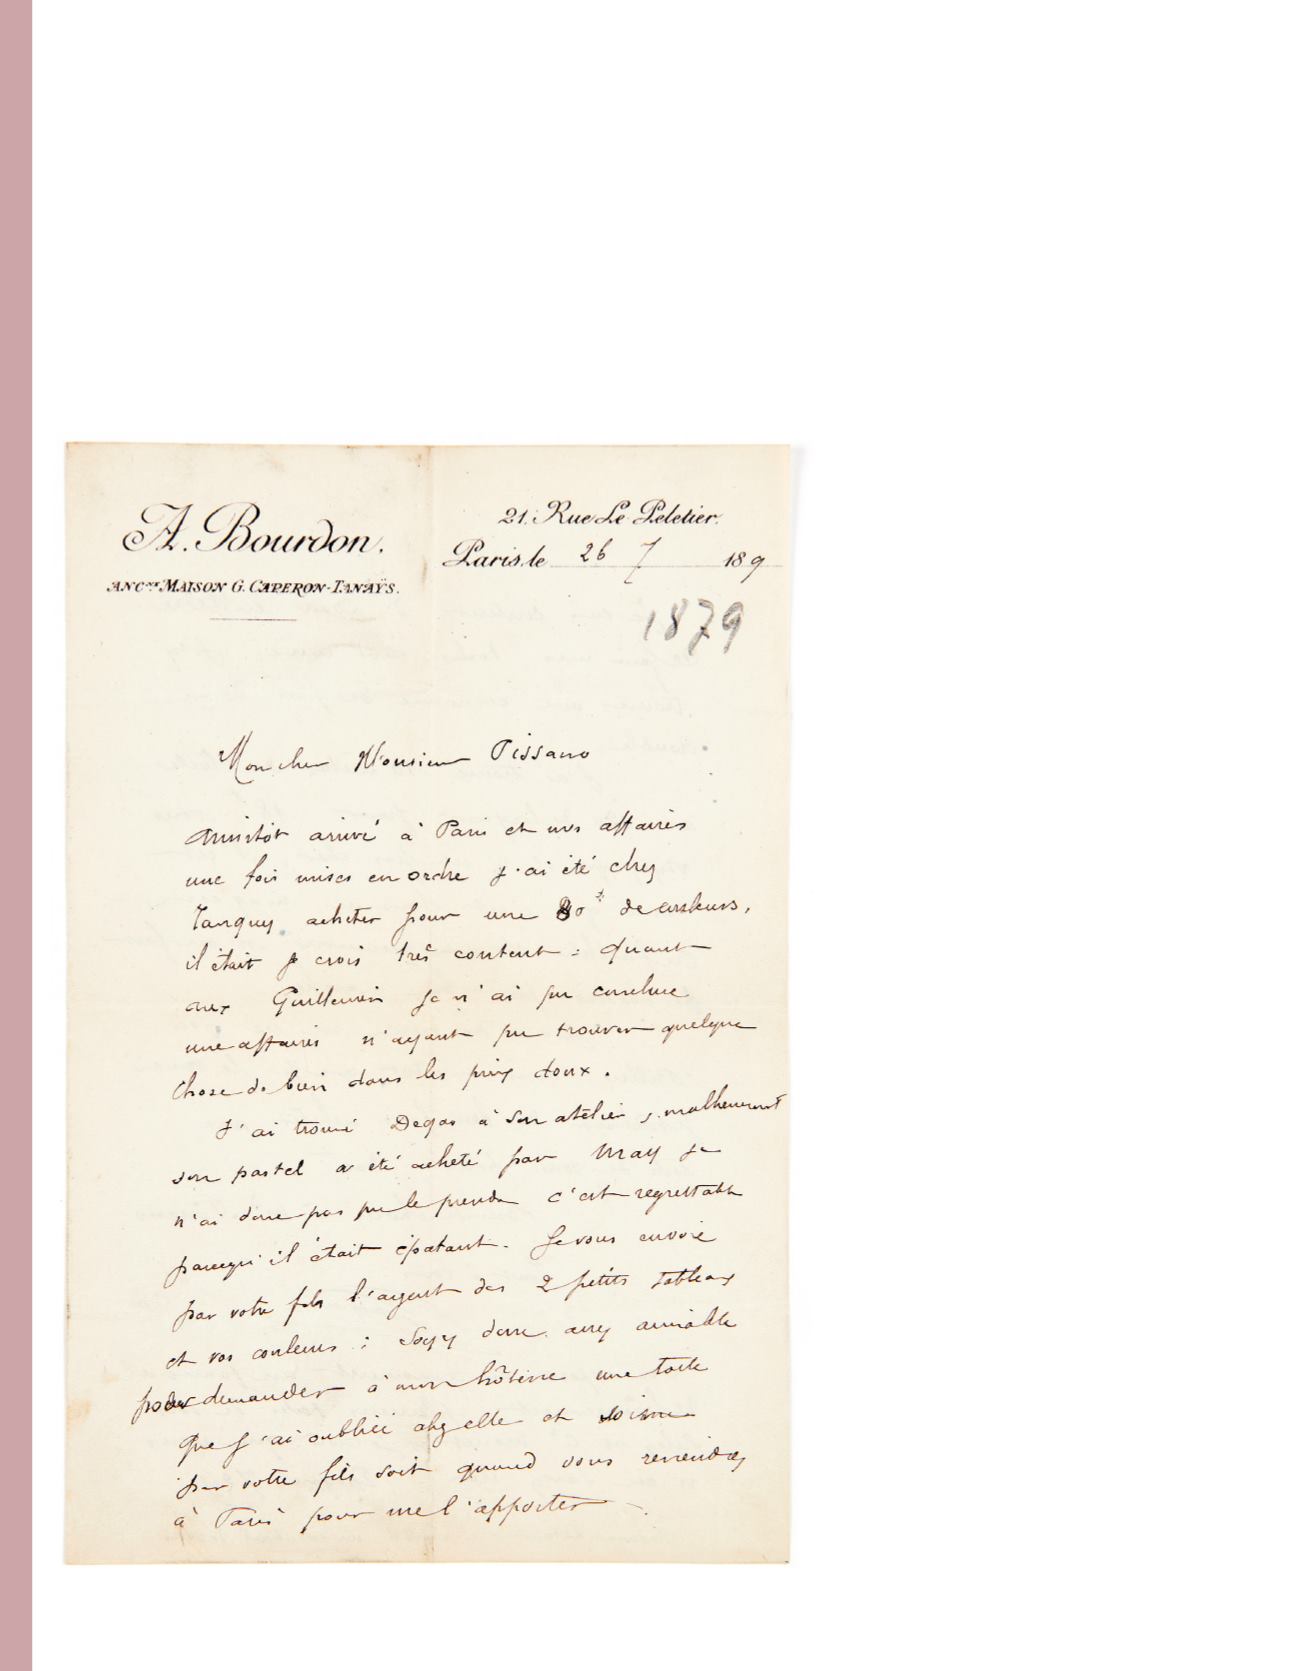 A. Bourdon.
ANC.NE MAISON G. CAPERON-TANAŸS.
21. Rue Le Peletier.
Paris, le 26 7 189
1879
Mon cher Monsieur Pissarro
Aussitôt arrivé à Paris et mes affaires
une fois mises en ordre j'ai été chez
Tanguy acheter pour une de couleurs,
il était je crois très content : quant
aux Guillaumin je n'ai pu conclure
une affaires n'ayant pu trouver quelque
chose de bien dans les prix doux.
J'ai trouvé Degas à son atelier, malheureust
son pastel a été acheté par May je
n'ai donc pas pu le prendre c'est regrettable
parcequ'il était épatant. Je vous envoie
par votre fils l'argent des 2 petits tableaux
et vos couleurs : Soyez donc assez aimable
demander à mon hôtesse une toile
que j'ai oubliée chez elle et soit
par votre fils soit quand vous reviendrez
à Paris pour me l'apporter